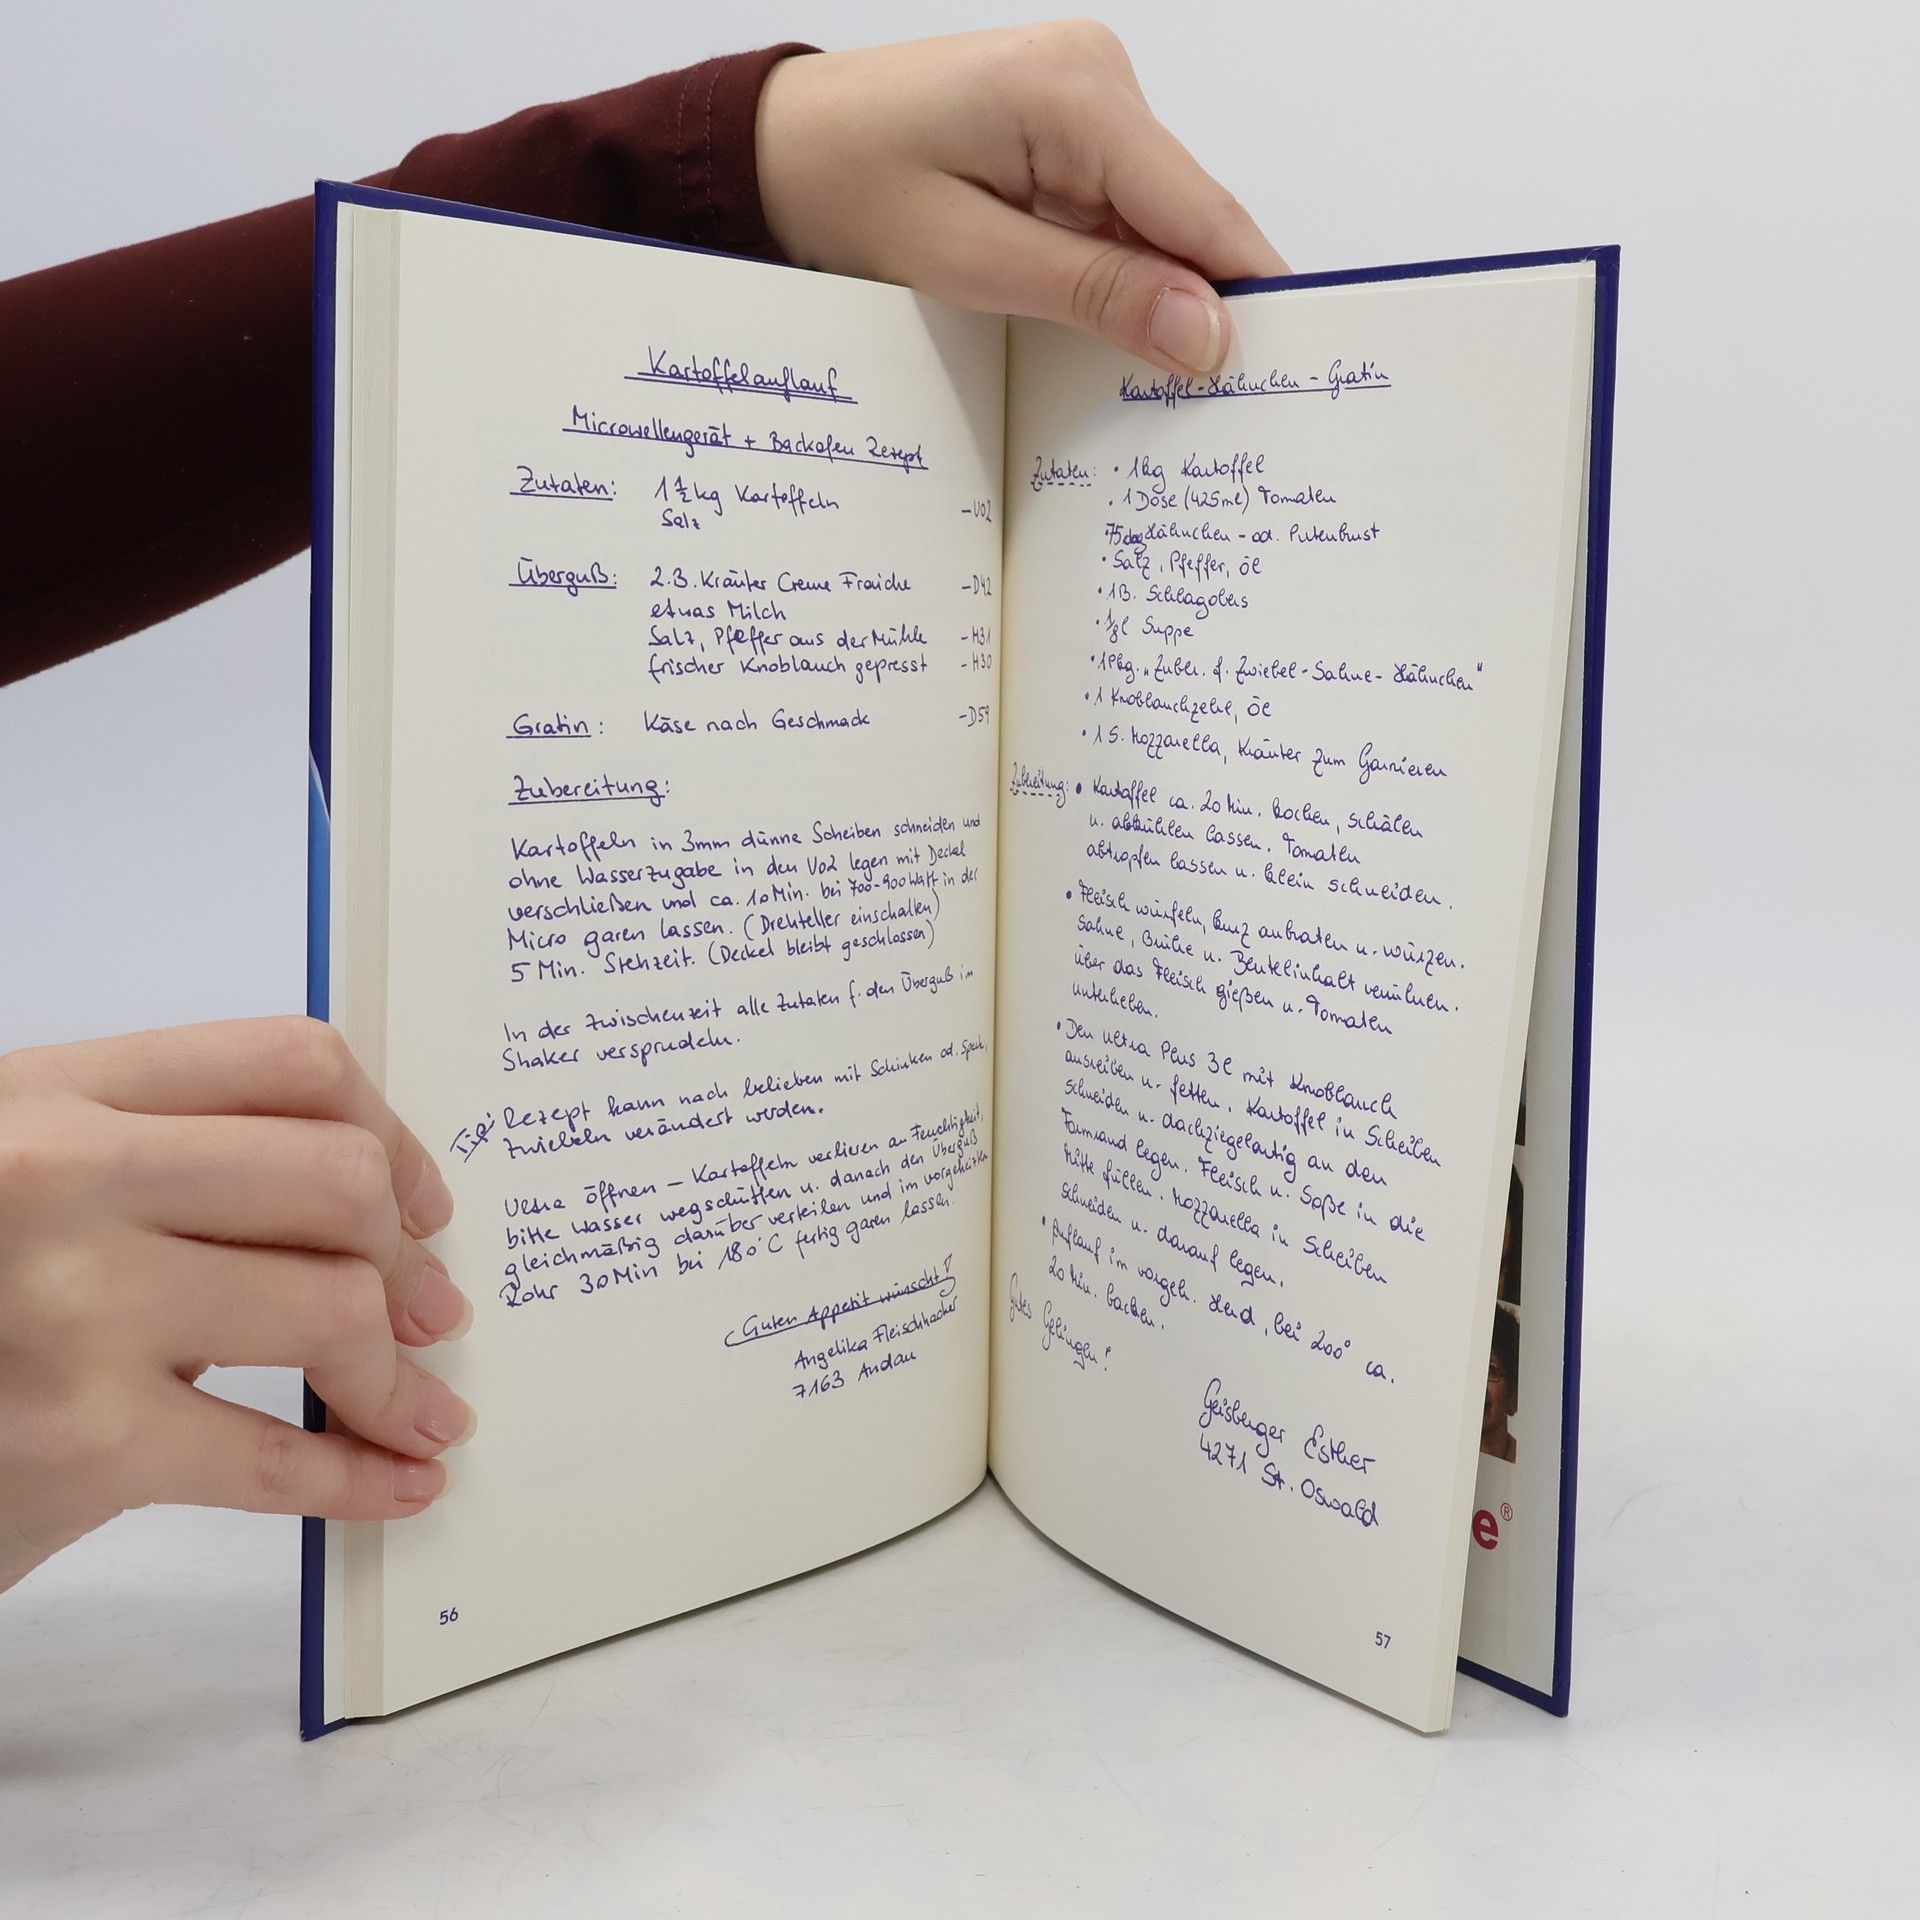 Kartoffelauflauf
Microwellengerät + Backofen Rezept
Zutaten: 1 1/2 kg Kartoffeln
Salz - V02
Überguß: 2.B. Kräuter Creme Fraiche - D42
etwas Milch
Salz, Pfeffer aus der Mühle - H31
frischer Knoblauch gepresst - H30
Gratin: Käse nach Geschmack - D59
Zubereitung:
Kartoffeln in 3mm dünne Scheiben schneiden und
ohne Wasserzugabe in den V02 legen mit Deckel
verschließen und ca. 10 Min. bei 700-900 Watt in der
Micro garen lassen. (Drehteller einschalten)
5 Min. Stehzeit. (Deckel bleibt geschlossen)
In der Zwischenzeit alle Zutaten f. den Überguß im
Shaker versprudeln.
Tip: Rezept kann nach belieben mit Schinken od. Speck,
Zwiebeln verändert werden.
Ultra öffnen - Kartoffeln verlieren an Feuchtigkeit,
bitte Wasser wegschütten u. danach den Überguß
gleichmäßig darüber verteilen und im vorgeheizten
Rohr 30 Min bei 180°C fertig garen lassen.
Guten Appetit wünscht
Angelika Fleischhacker
7163 Andau
56
Kartoffel-Hähnchen-Gratin
Zutaten: • 1kg Kartoffel
• 1 Dose (425ml) Tomaten
• 75dag Hähnchen- od. Putenbrust
• Salz, Pfeffer, Öl
• 1B. Schlagobers
• 1/8l Suppe
• 1Pkg. "Zuber. f. Zwiebel-Sahne-Hähnchen"
• 1 Knoblauchzehe, Öl
• 1 S. Mozzarella, Kräuter zum Garnieren
Zubereitung: • Kartoffel ca. 20 Min. kochen, schälen
u. abkühlen lassen. Tomaten
abtropfen lassen u. klein schneiden.
• Fleisch würfeln, kurz anbraten u. würzen.
Sahne, Brühe u. Beutelinhalt verrühren.
über das Fleisch gießen u. Tomaten
unterheben.
• Den Ultra Plus 3l mit Knoblauch
ausreiben u. fetten. Kartoffel in Scheiben
schneiden u. dachziegelartig an den
Formrand legen. Fleisch u. Soße in die
Mitte füllen. Mozzarella in Scheiben
schneiden u. darauf legen.
• Auflauf im vorgeh. Herd, bei 200° ca.
20 Min. backen.
Gutes Gelingen!
Geisberger Esther
4271 St. Oswald
57
e®